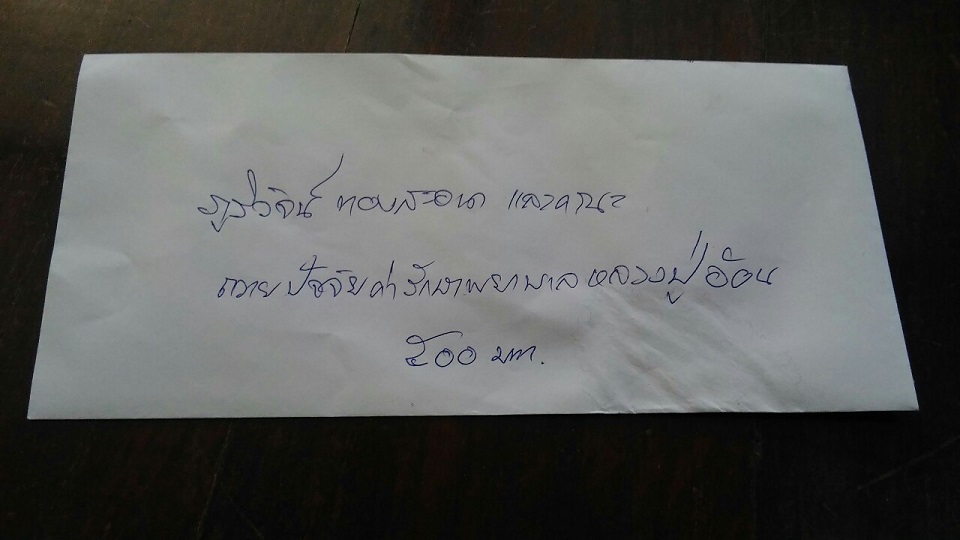 ภูริวัจน์ ทองสะอาด และคณะ
ถวายปัจจัยค่ารักษาพยาบาลหลวงปู่อ้อน
๕๐๐ บาท.